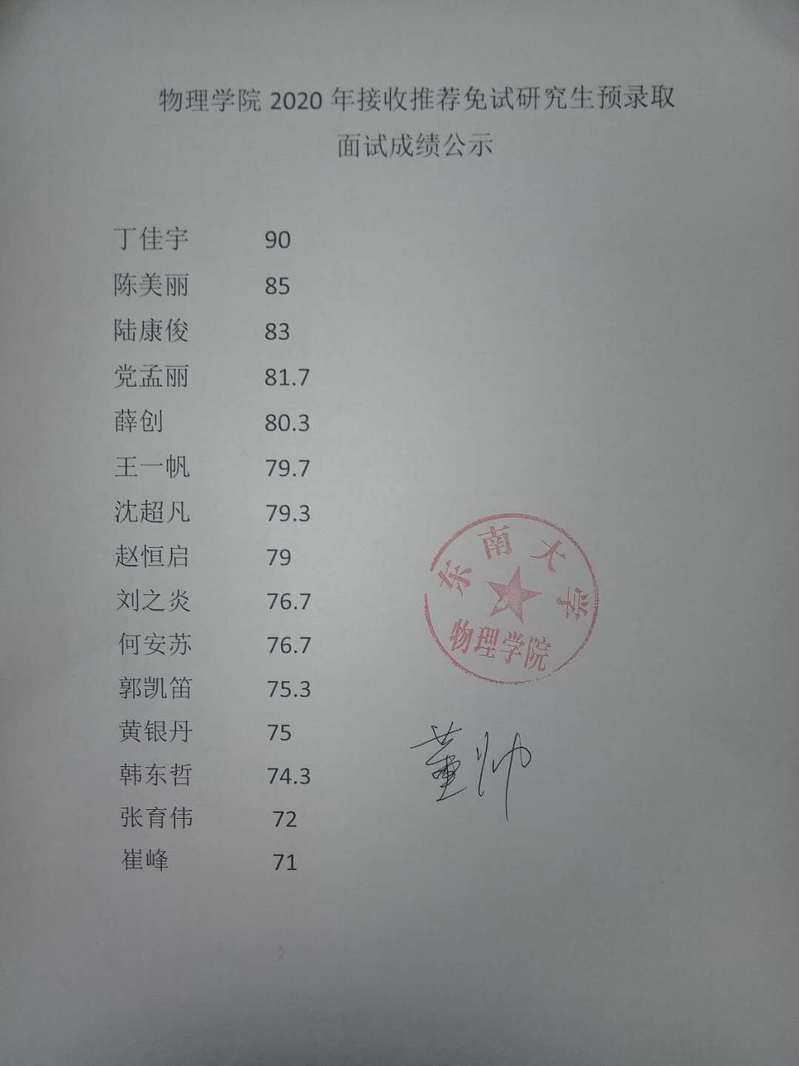 物理学院 2020 年接收推荐免试研究生预录取
面试成绩公示
丁佳宇 90
陈美丽 85
陆康俊 83
党孟丽 81.7
薛创 80.3
王一帆 79.7
沈超凡 79.3
赵恒启 79
刘之炎 76.7
何安苏 76.7
郭凯笛 75.3
黄银丹 75
韩东哲 74.3
张育伟 72
崔峰 71
东南大学
物理学院
董帅